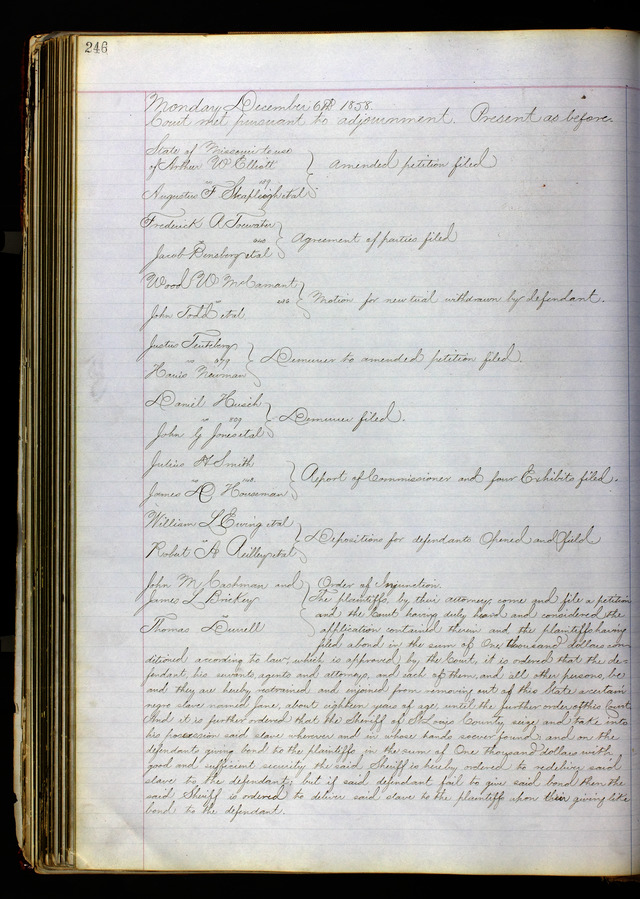 246
Monday December 6th 1858.
Court met pursuant to adjournment. Present as before.
State of Missouri to use
of Arthur W Elliott
Amended petition filed
vs
Augustus F Shapleigh etal
Frederick A
vs
Agreement of parties filed
Jacob etal
Wood W McCamant
vs
Motion for new trial withdrawn by defendant.
John Todd etal
Justus
vs
Demurrer to amended petition filed.
Newman
Daniel Huisch
vs
Demurrer filed.
John G Jones etal
Julius H Smith
vs
Report of Commissioner and four Exhibits filed.
James Houseman
William L Ewing etal
vs
Depositions for defendants Opened and filed
Robert A Reilley etal
John M Cashman and
James L Brickey
vs
Thomas Durrell
Order of Injunction.
The plaintiffs, by their attorney, come and file a petition
and the Court having duly heard and considered the
application contained therein and the plaintiffs having
filed a bond in the sum of One thousand dollars con-
ditioned according to law, which is approved by the Court, it is ordered that the de-
fendant, his servants, agents and attorneys, and each of them, and all other persons, be
and they are hereby restrained and injoined from removing out of this State a certain
negro slave named Jane, about eighteen years of age, until the further order of this Court.
And it is further ordered that the Sheriff of St Louis County, seize and take into
his possession said slave wherever and in whose hands soever found, and on the
defendants giving bond to the plaintiffs, in the sum of One thousand dollars with
good and sufficient security the said Sheriff is hereby ordered to redeliver said
slave to the defendant; but if said defendant fail to give said bond then the
said Sheriff is ordered to deliver said slave to the plaintiffs upon their giving like
bond to the defendant.